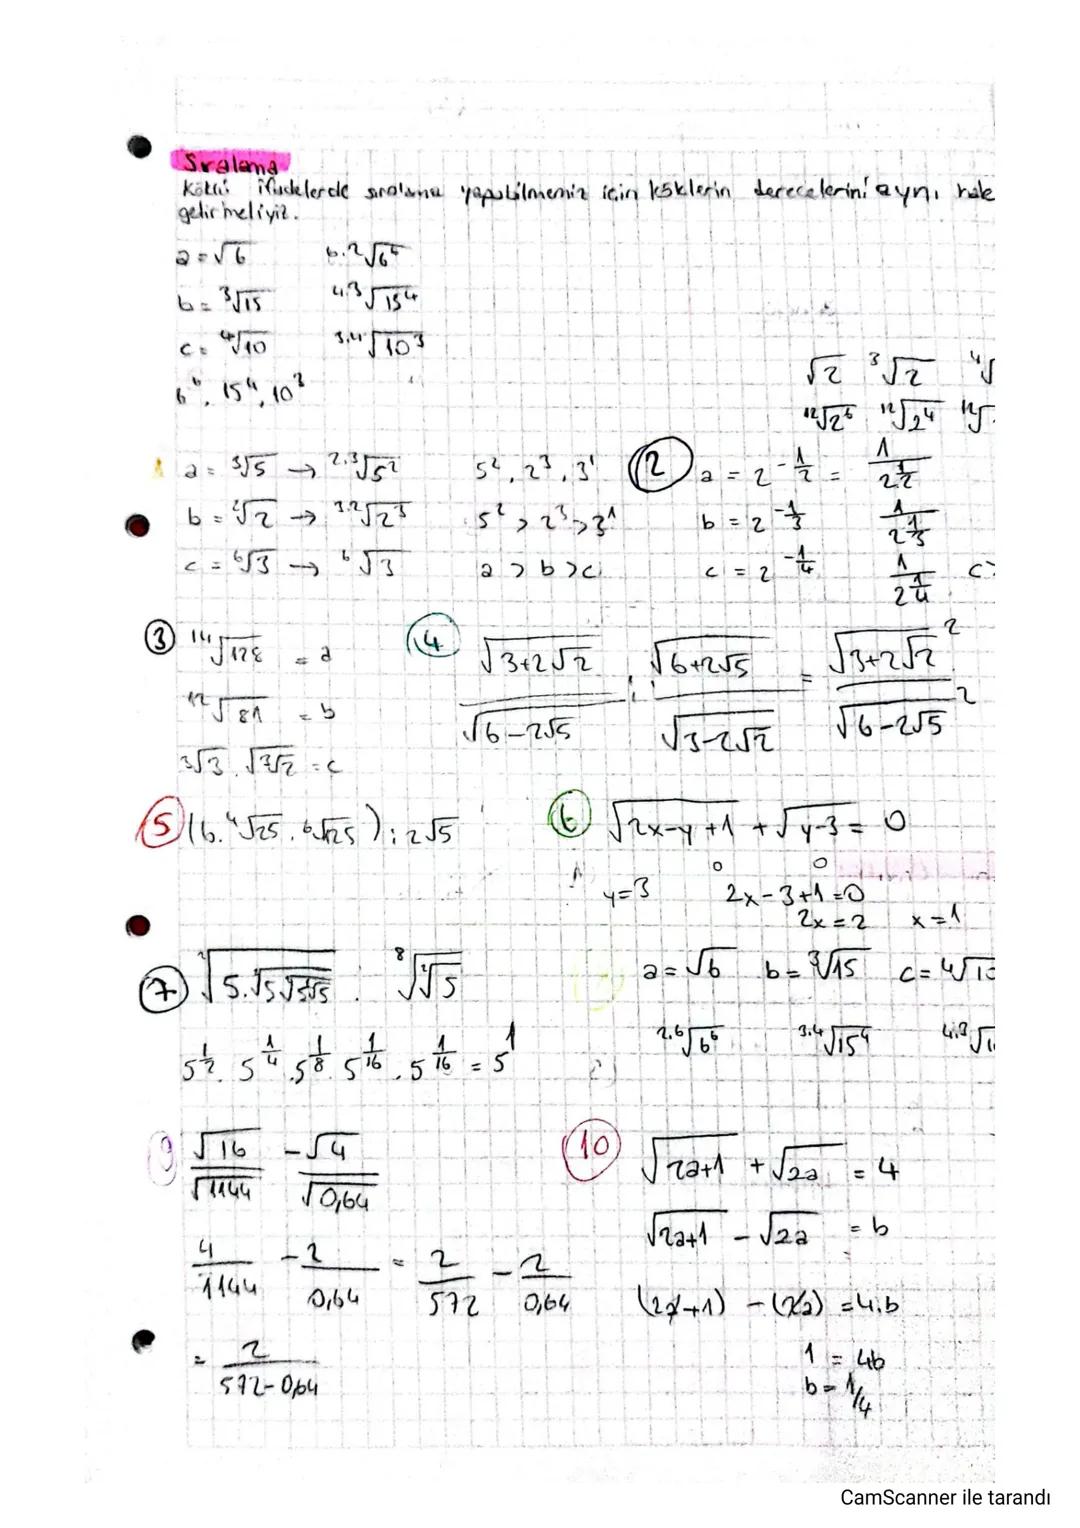 Sıralama
Köklü ifadelerde sıralama yapabilmemiz için köklerin derecelerini aynı hale
getirmeliyiz.
a = √6    6.2√6⁶
b = ³√15    4.3√15⁴
c = ⁴√10    3.4√10³
6⁶, 15⁴, 10³
√2  ³√2  ⁴√
¹²√2⁶  ¹²√2⁴  ¹²√
1 a = ³√5 → 2.3√5²    5², 2³, 3¹
b = ²√2 → 3.2√2³    5² > 2³ > 3¹
c = ⁶√3 → ⁶√3    a > b > c
(2) a = 2^-1/2 = 1/2^1/2
b = 2^-1/3    1/2^1/3
c = 2^-1/4    1/2^1/4    c>
(3) ¹⁴√128 = a
¹²√81 = b
³√3 . √³√2 = c
(4) √3+2√2 / √6-2√5 : √6+2√5 / √3-2√2 = √3+2√2² / √6-2√5²
(5) (6.⁴√25 . ⁶√125) : 2√5
(6) √2x-y+1 + √y-3 = 0
0    0
y=3    2x-3+1=0
2x=2    x=1
(7) ²√5.√5√5√5 . ⁸√²√5
5^1/2 . 5^1/4 . 5^1/8 . 5^1/16 . 5^1/16 = 5^1
a=√6  b=³√15  c=⁴√10
2.6√6⁶    3.4√15⁴    4.3√1
9 √16/√1144 - √4/√0,64
4/1144 - 2/0,64 = 2/572 - 2/0,64
= 2/572-0,64
(10) √2a+1 + √2a = 4
√2a+1 - √2a = b
(2a+1) - (2a) = 4.b
1 = 4b
b = 1/4
CamScanner ile tarandı